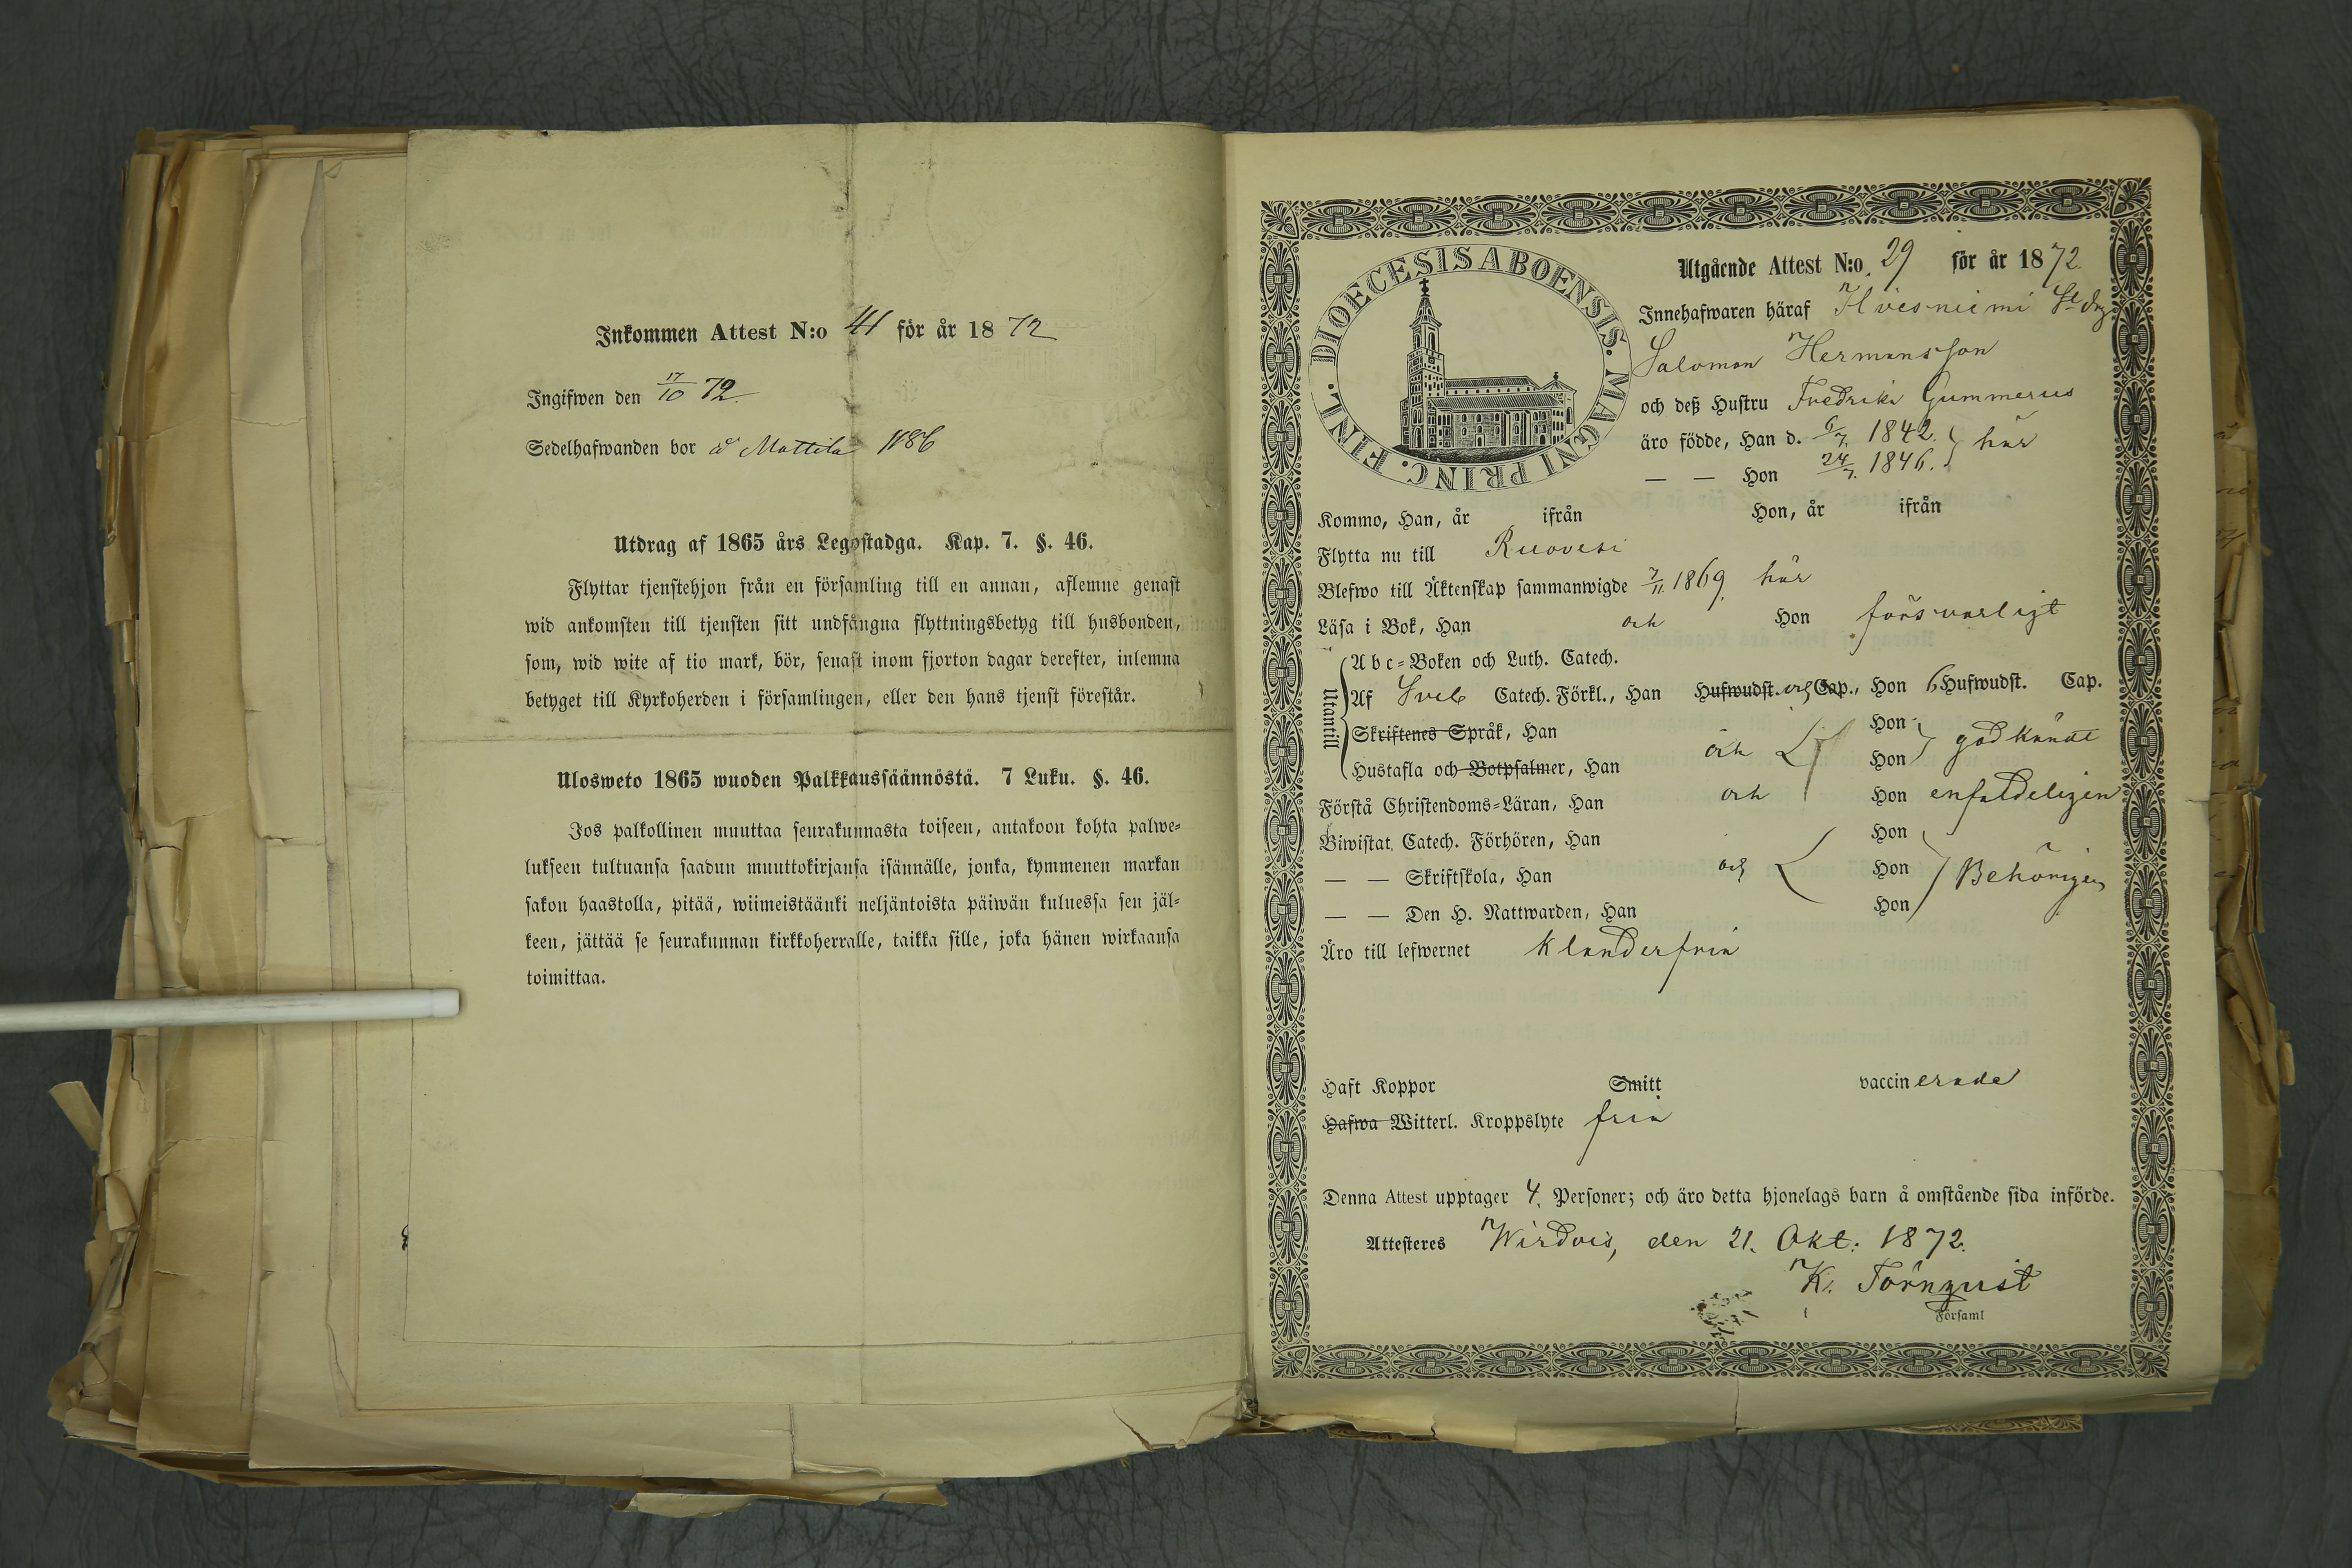 Inkommen Attest N:o 41 för år 1872
Ingifwen den 17/10 72
Sedelhafwanden bor å Mattila 1186
Utdrag af 1865 års Legostadga. Kap. 7. §. 46.
Flyttar tjenstehjon från en församling till en annan, aflemne genast
wid ankomsten till tjensten sitt undfångna flyttningsbetyg till husbonden,
som, wid wite af tio mark, bör, senast inom fjorton dagar derefter, inlemna
betyget till Kyrkoherden i församlingen, eller den hans tjenst förestår.
Ulosweto 1865 wuoden Palkkaussäännöstä. 7 Luku. §. 46.
Jos palkollinen muuttaa seurakunnasta toiseen, antakoon kohta palwe-
lukseen tultuansa saadun muuttokirjansa isännälle, jonka, kymmenen markan
sakon haastolla, pitää, wiimeistäänki neljäntoista päiwän kuluessa sen jäl-
keen, jättää se seurakunnan kirkkoherralle, taikka sille, joka hänen wirkaansa
toimittaa.
DIOECESIS ABOENSIS. MAGNI PRINC. FINL.
Utgående Attest N:o 29 för år 1872.
Innehafwaren häraf Ilvesniemi
Salomon Hermansson
och deß Hustru Fredrika Gummerus
äro födde, Han d. 6/7. 1842. } här
— — Hon 24/7. 1846.
Kommo, Han, år ifrån Hon, år ifrån
Flytta nu till Ruovesi
Blefwo till Äktenskap sammanwigde 7/11. 1869. här
Läsa i Bok, Han och Hon försvarligt
Utantill
Abc-Boken och Luth. Catech.
Af Sveb Catech. Förkl., Han Hufwudst. och Cap., Hon 6 Hufwudst. Cap.
Skriftenes Språk, Han Hon
Hustafla och Botpsalmer, Han och Hon } godkändt
Förstå Christendoms-Läran, Han och Hon enfaldeligen
Biwistat Catech. Förhören, Han Hon
— — Skriftskola, Han och Hon } Behörigen
— — Den H. Nattwarden, Han Hon
Äro till lefwernet klanderfria
Haft Koppor Smitt vaccinerade
Hafwa Witterl. Kroppslyte fria
Denna Attest upptager 4. Personer; och äro detta hjonelags barn å omstående sida införde.
Attesteres Wirdois, den 21. Okt: 1872.
K. Törnqvist
Församl